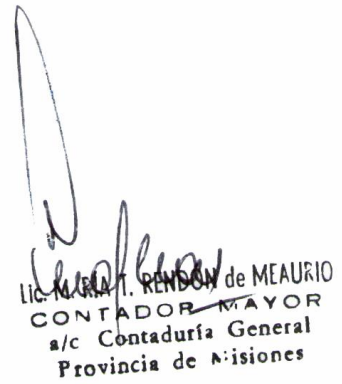 Lic. MARIA T. RENDON de MEAURIO
CONTADOR MAYOR
a/c Contaduría General
Provincia de Misiones